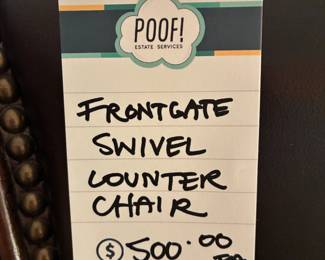 POOF!
ESTATE SERVICES
FRONTGATE
SWIVEL
COUNTER
CHAIR
$ 500.00